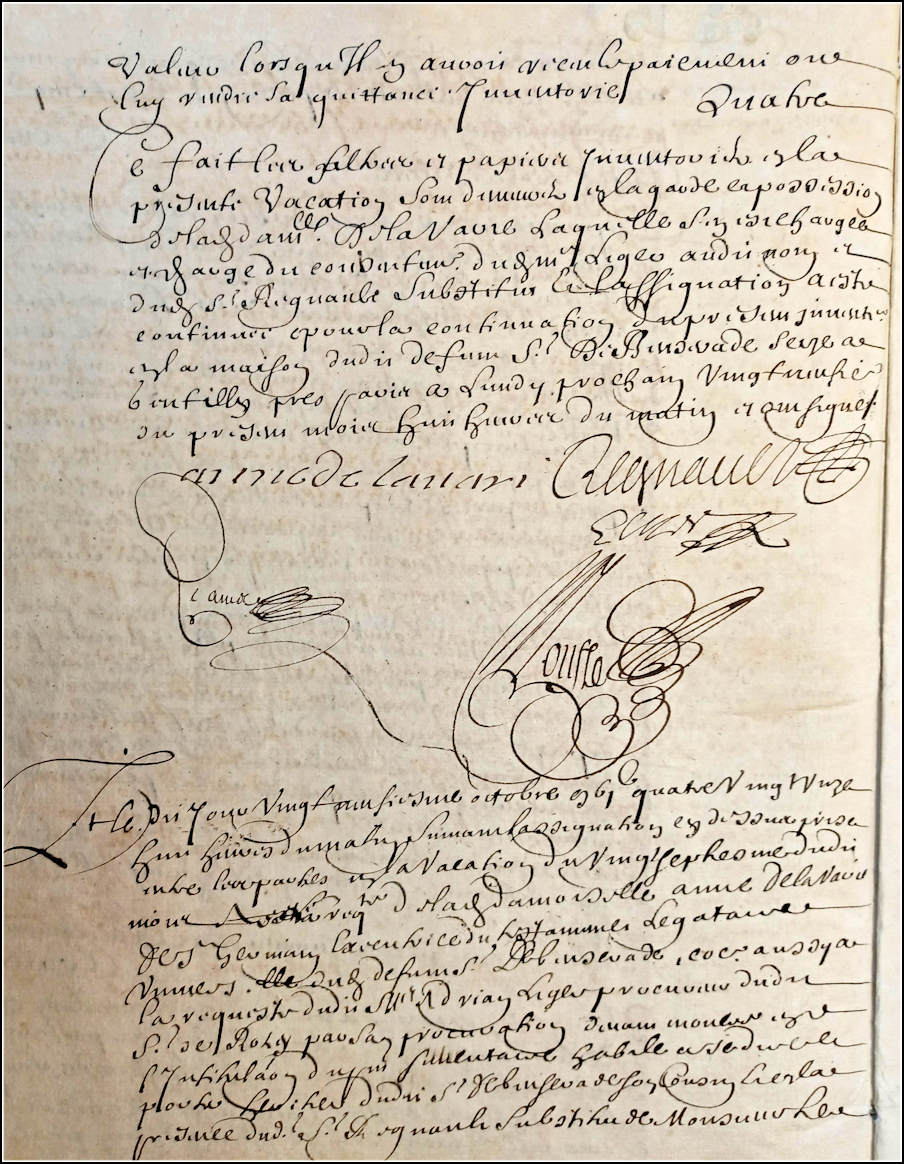 Valeur lorsqu'Il en auroit receu le paiement ou a
luy rendre sa quittance Inventorié Quatre
Ce fait les filtres et papiers Inventoriés en la
presente Vacation sont demeurés en la garde et possession
de lad dam.lle De la Vare Laquelle s'en est chargée
et charge du consentem.t dud m.e Liger audit nom et
dud s.r Regnault Substitut et L'assignation a esté
continuée pour la continuation du present Invent.re
en la maison dudit defunt S.r De Benserade seize a
Gentilly pres paris a Lundy prochain Vingtneufie.
du present mois huit heures du matin et ont signé
anne de lavare Regnault
Liger
Lamer
Et le dit Jour Vingtneufiesme octobre quatre Vingt Unze
huit heures du matin suivant l'assignation cy dessus prise
entre les parties en la Vacation du Vingt septiesme dudit
mois req.te de lad damoiselle anne De la Vare
De S.t Germain Executrice du testament Legataire
Univers. dud defunt S.r De benserade, aussy a
la requeste dudit S.r Adrian Liger procureur dudit
S.r de par sa procuration devant en
l'Intitulaon du p.nt Inventaire habile a se dire et
porter heritier dudit S.r De benserade son Cousin et en la
presence dud. S.r Regnault Substitut de Monsieur Le